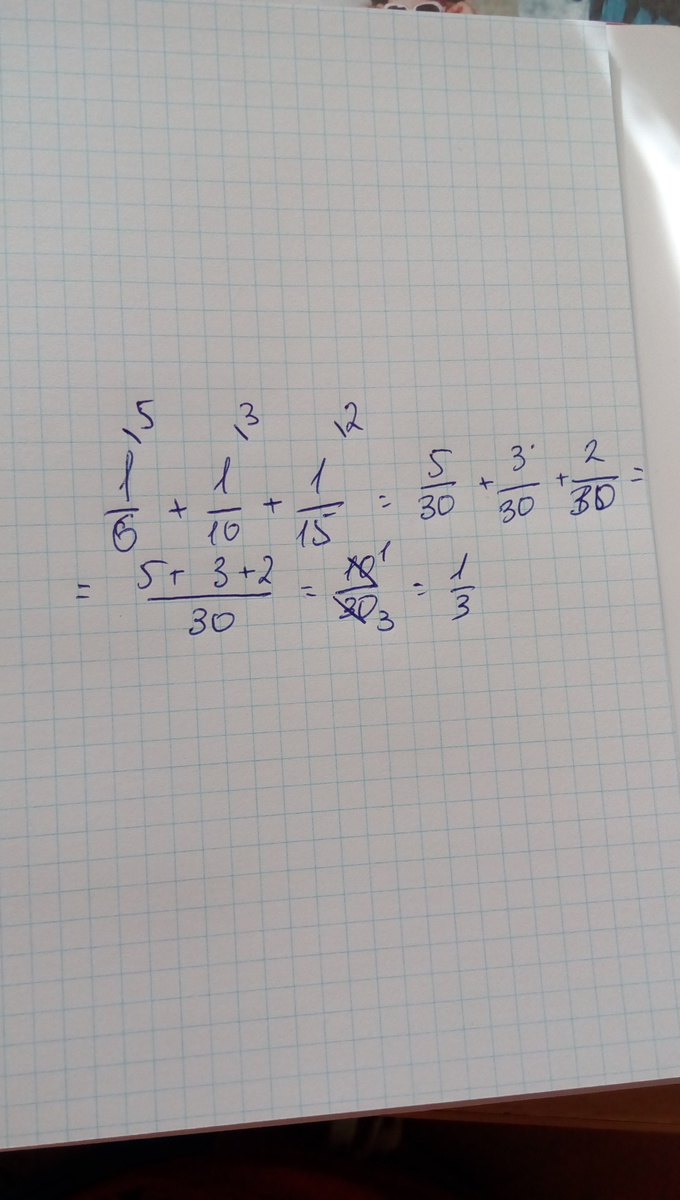 5 3 2
1/6 + 1/10 + 1/15 = 5/30 + 3/30 + 2/30 =
= (5 + 3 + 2)/30 = 10 1/30 3 = 1/3